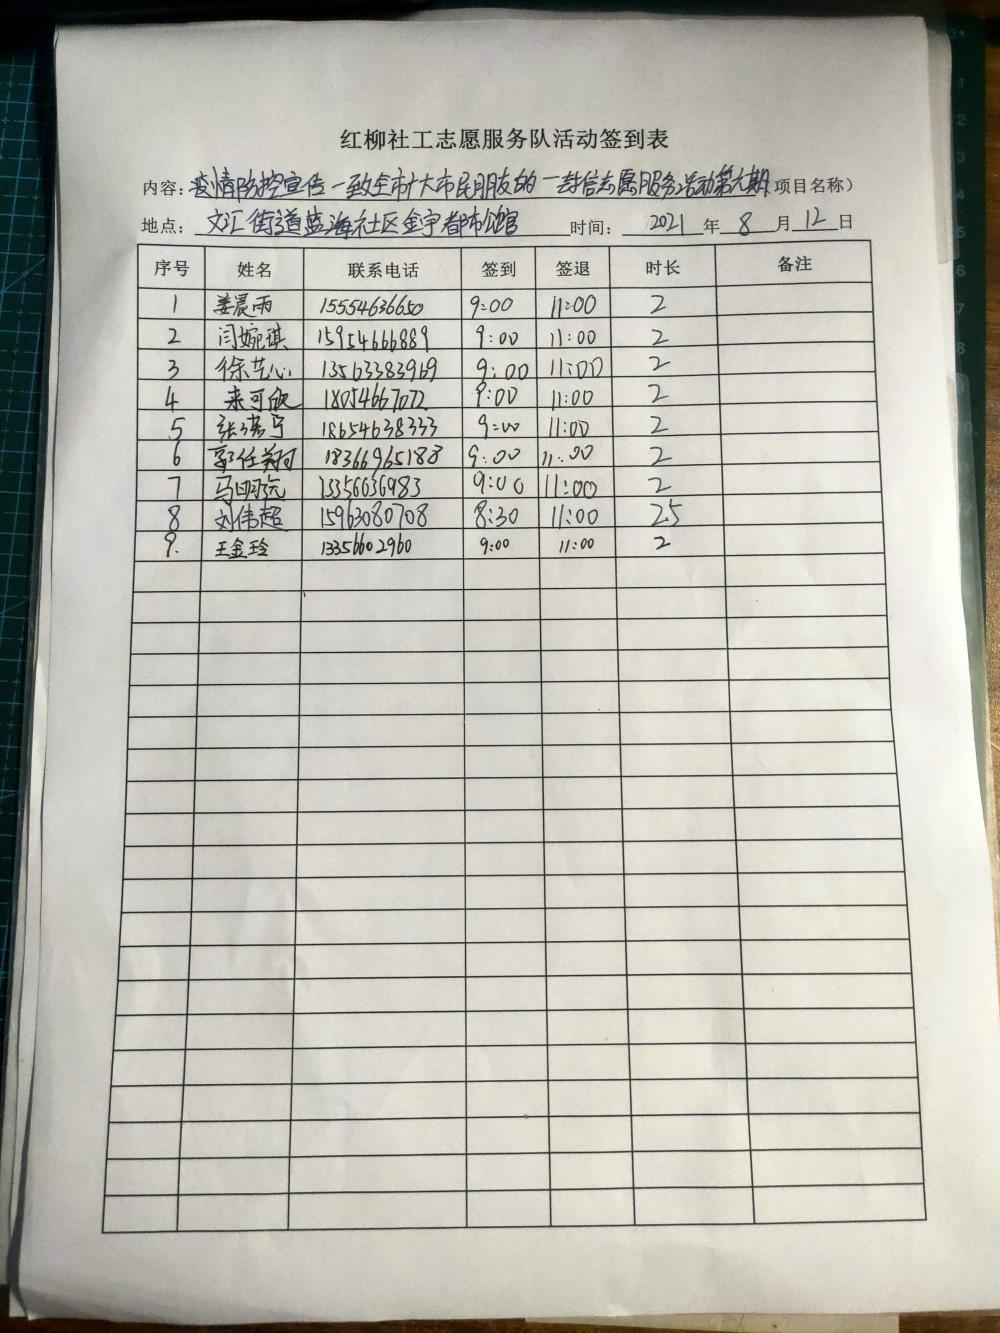 红柳社工志愿服务队活动签到表
内容：疫情防控宣传一致全市广大市民朋友的一封信志愿服务活动第六期（项目名称）
地点：文汇街道蓝海社区金宇都市公馆 时间：2021年8月12日
序号 姓名 联系电话 签到 签退 时长 备注
1 姜晨雨 15554636650 9:00 11:00 2
2 闫婉琪 15954666889 9:00 11:00 2
3 徐艺心 13563383969 9:00 11:00 2
4 来可欣 18054667072 9:00 11:00 2
5 张 18654638333 9:00 11:00 2
6 郭任 18366965188 9:00 11:00 2
7 马明 13356636983 9:00 11:00 2
8 刘伟超 15963080708 8:30 11:00 2.5
9. 王金玲 13356602960 9:00 11:00 2